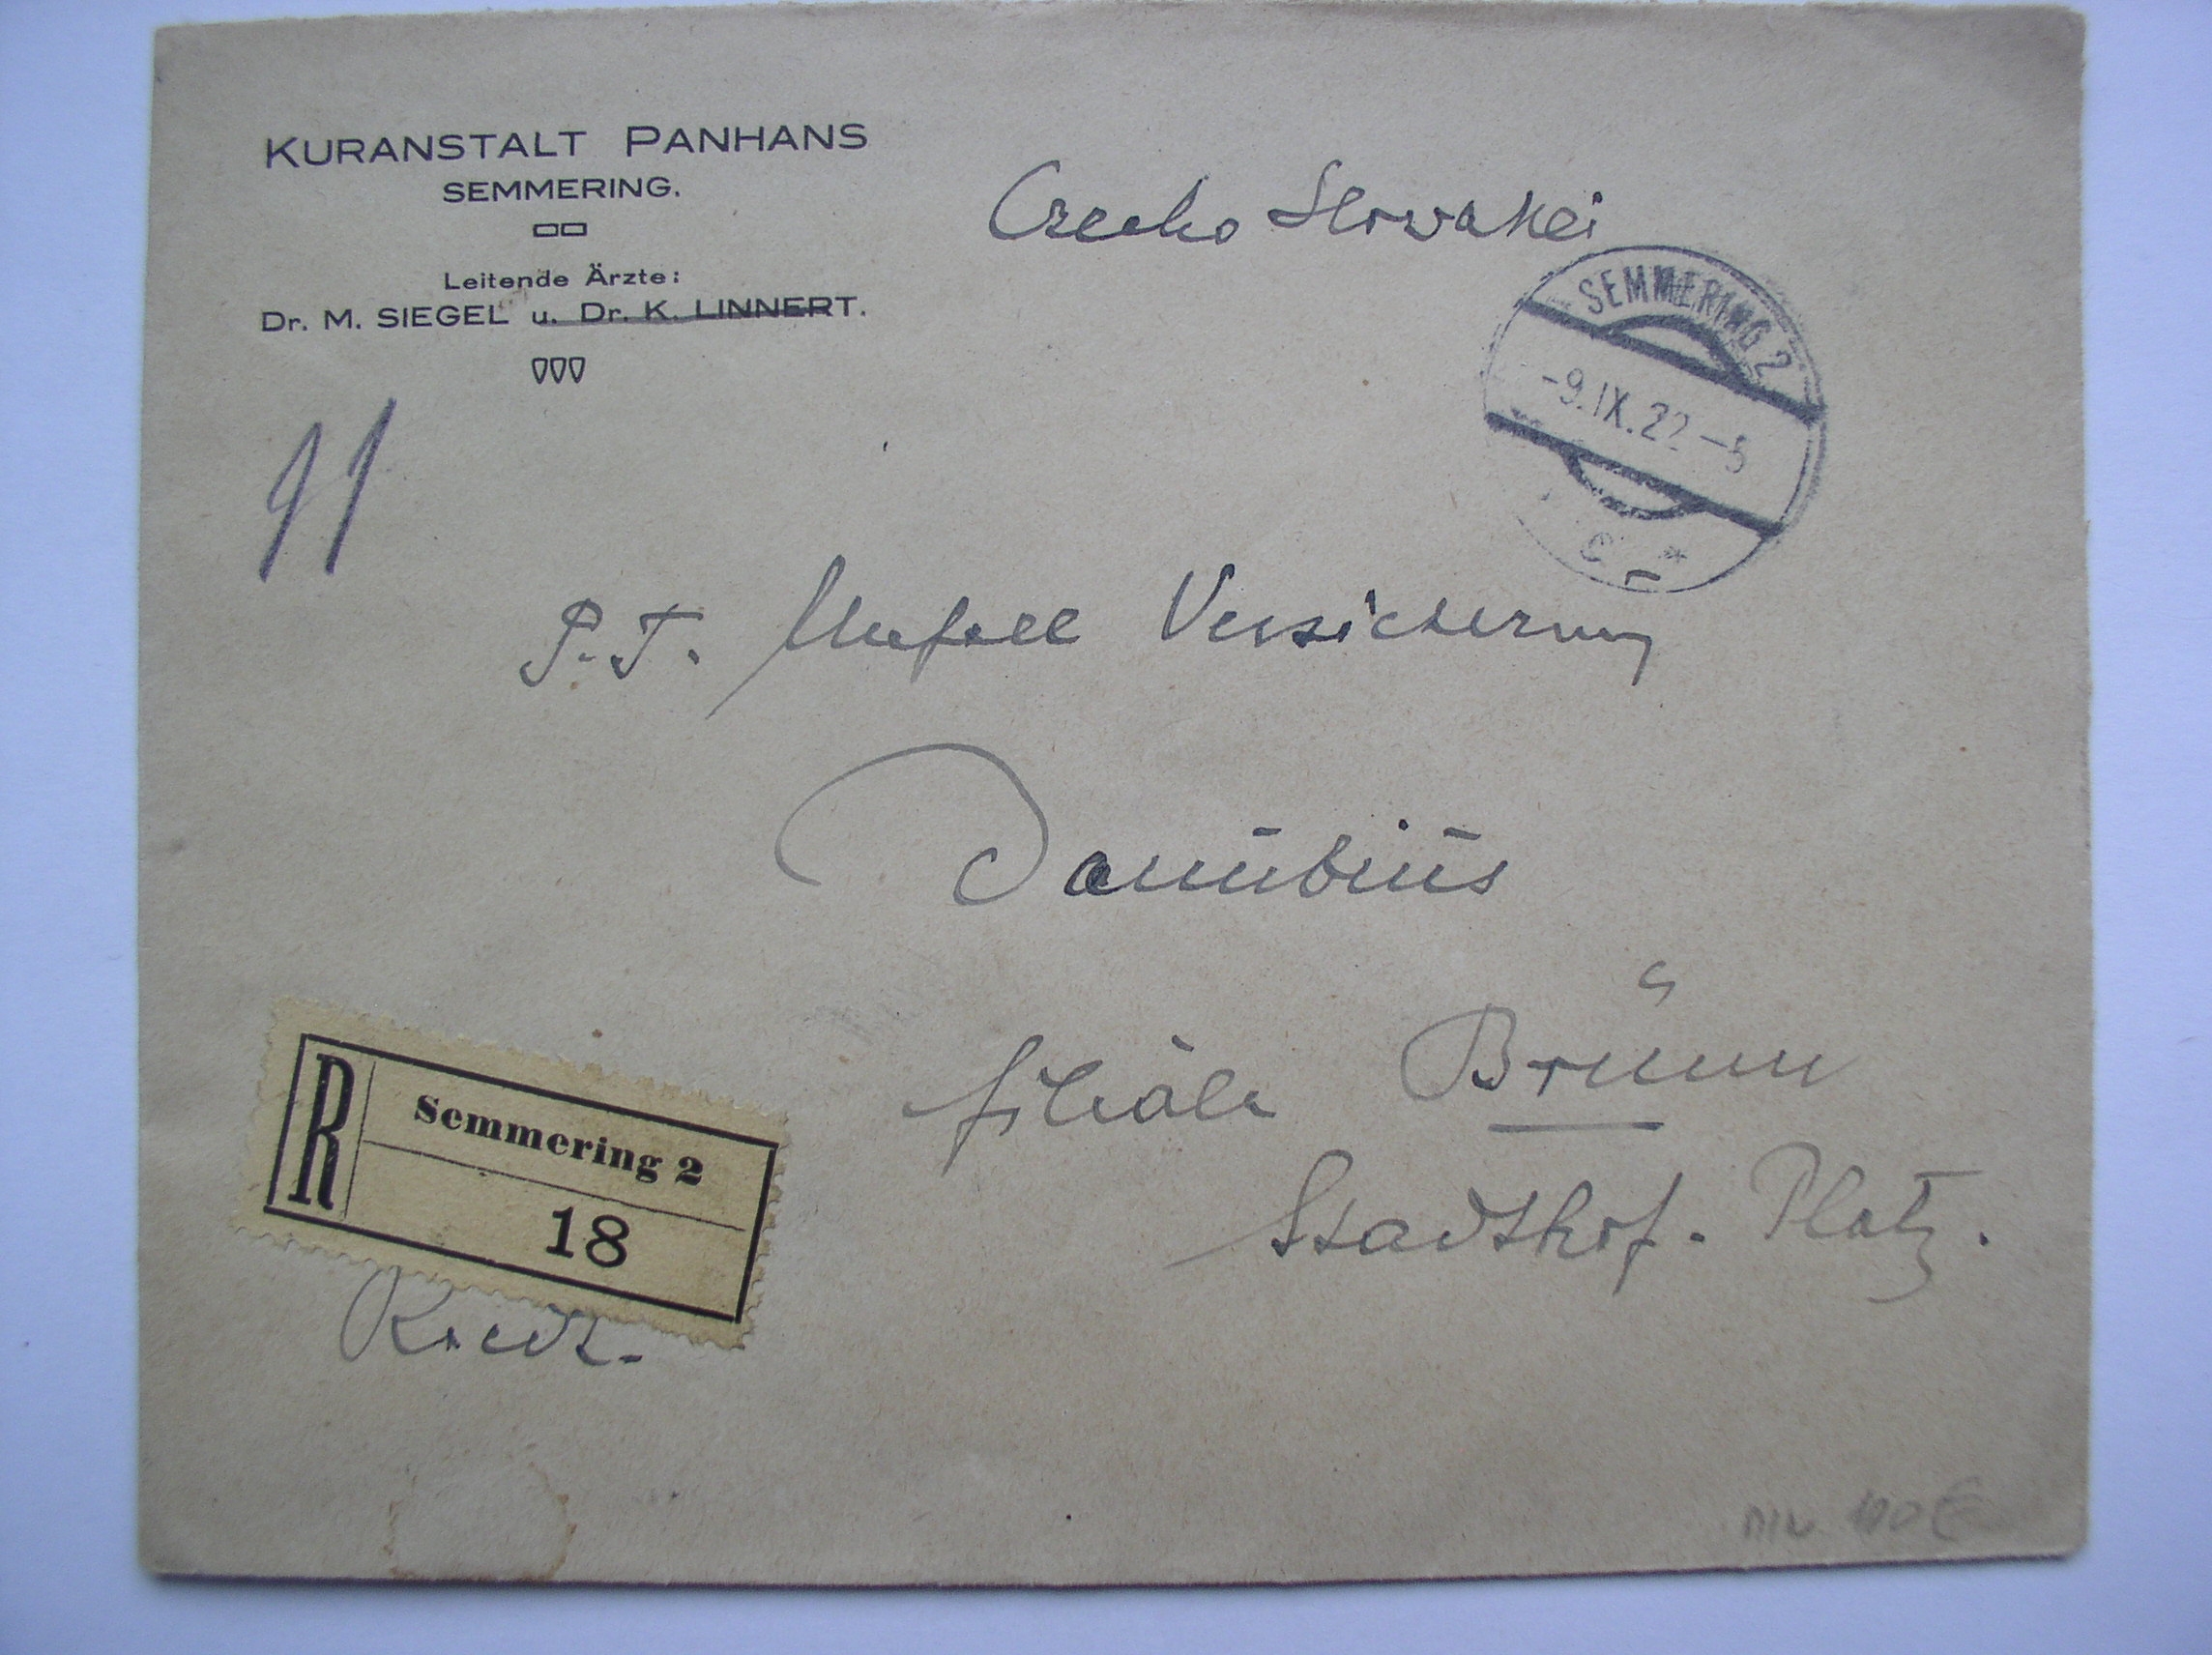 KURANSTALT PANHANS
SEMMERING.
Leitende Ärzte:
Dr. M. SIEGEL u. Dr. K. LINNERT.
Czecho Slowakei
SEMMERING 2
-9.IX.22-5
c *
91
P.T. Unfall Versicherung
Danubius
filiale Brünn
Stadthof-Platz.
R
Semmering 2
18